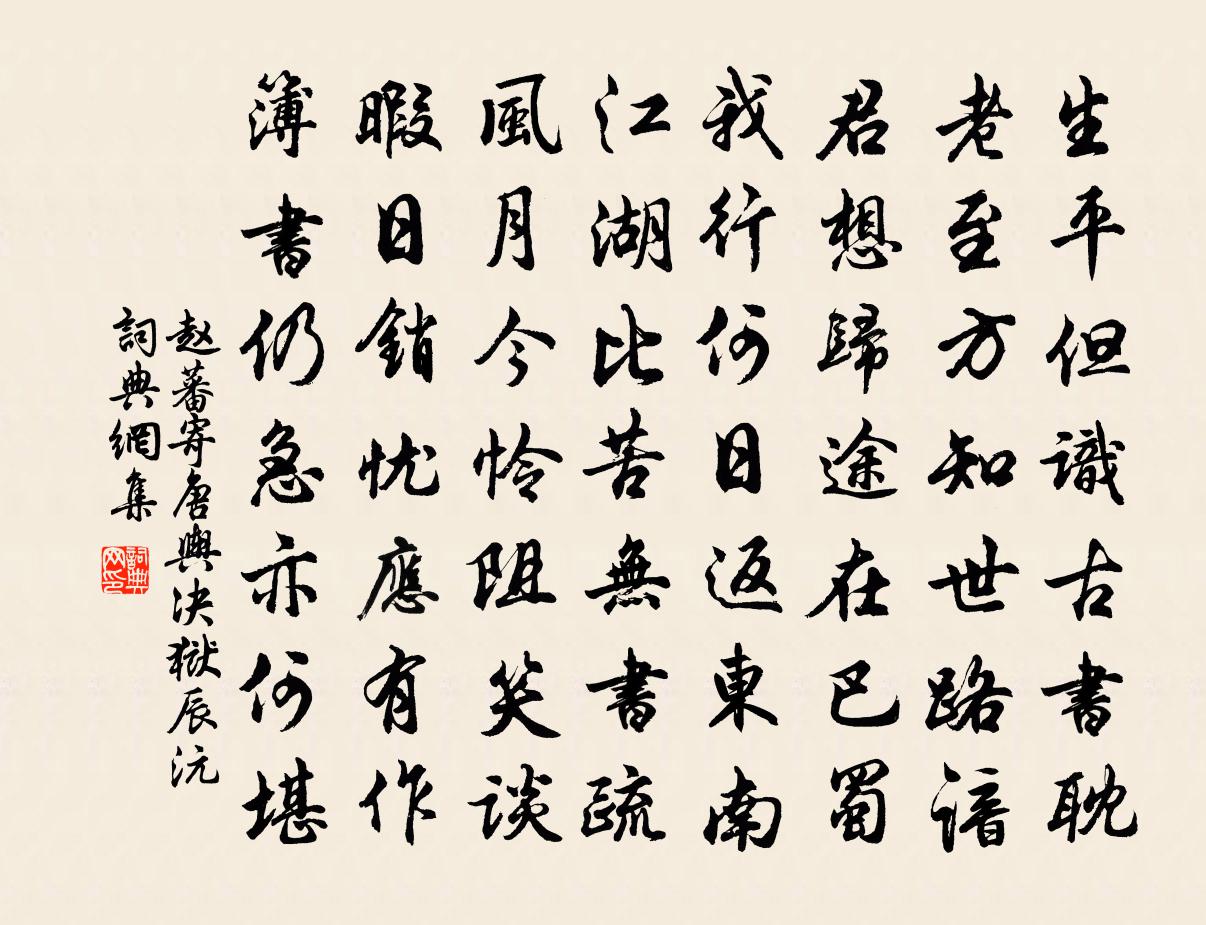 生平但識古書耽
老至方知世路諳
君想歸途在巴蜀
我行何日返東南
江湖比苦無書疏
風月今怜阻笑談
暇日銷忧應有作
簿書仍急亦何堪
赵蕃寄唐輿决獄辰沅
詞典網集
詞典网印